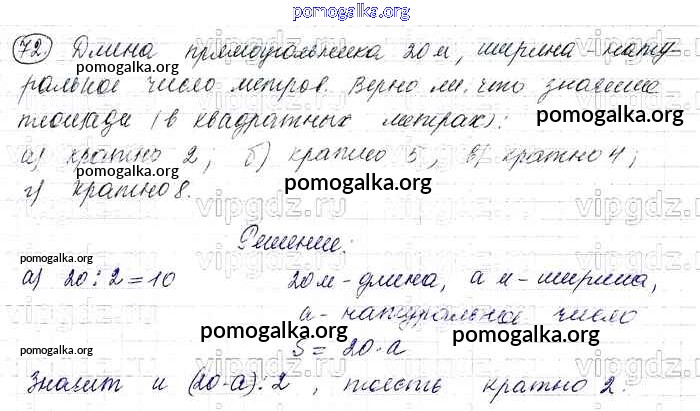 pomogalka.org
72. Длина прямоугольника 20 м, ширина - нату-
pomogalka.org
ральное число метров. Верно ли, что значение
pomogalka.org
площади (в квадратных метрах):
а) кратно 2; б) кратно 5; в) кратно 4;
pomogalka.org
г) кратно 8.
vipgdz.ru
Решение:
pomogalka.org
а) 20 : 2 = 10 20 м - длина, а м - ширина,
а - натуральное число
pomogalka.org pomogalka.org
S = 20·а
pomogalka.org
Значит и (20·а) : 2, то есть кратно 2.
pomogalka.org